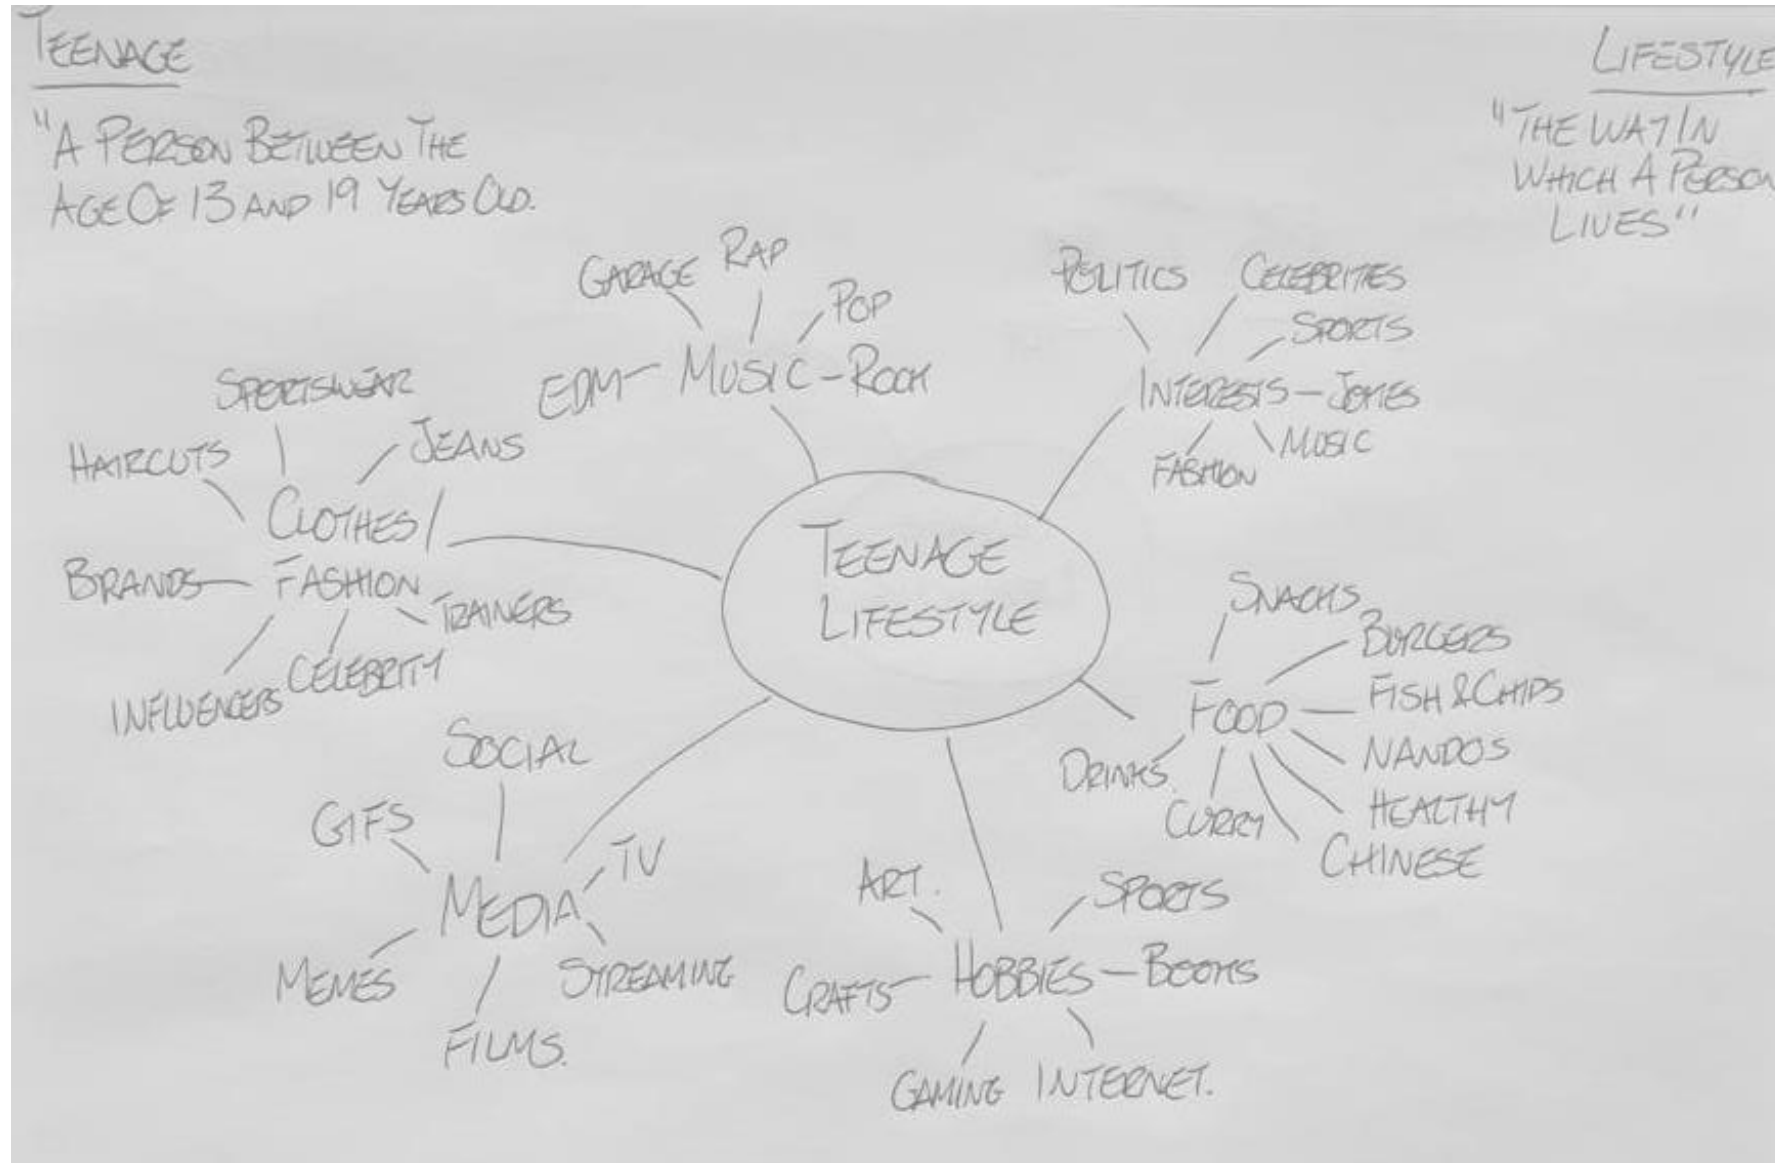 TEENAGE
"A PERSON BETWEEN THE
AGE OF 13 AND 19 YEARS OLD.
LIFESTYLE
"THE WAY IN
WHICH A PERSON
LIVES"
TEENAGE
LIFESTYLE
MUSIC
EDM
GARAGE
RAP
POP
ROCK
INTERESTS
POLITICS
CELEBRITIES
SPORTS
JOKES
MUSIC
FASHION
CLOTHES/
FASHION
HAIRCUTS
SPORTSWEAR
JEANS
BRANDS
TRAINERS
INFLUENCERS
CELEBRITY
FOOD
SNACKS
BURGERS
FISH & CHIPS
NANDOS
HEALTHY
CHINESE
CURRY
DRINKS
MEDIA
SOCIAL
GIFS
TV
MEMES
FILMS.
STREAMING
HOBBIES
ART.
SPORTS
CRAFTS
BOOKS
GAMING
INTERNET.